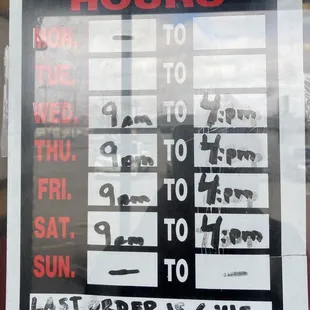 HOURS
MON. – TO
TUE. TO
WED. 9am TO 4:pm
THU. 9am TO 4:pm
FRI. 9am TO 4:pm
SAT. 9am TO 4:pm
SUN. — TO —
LAST ORDER IS